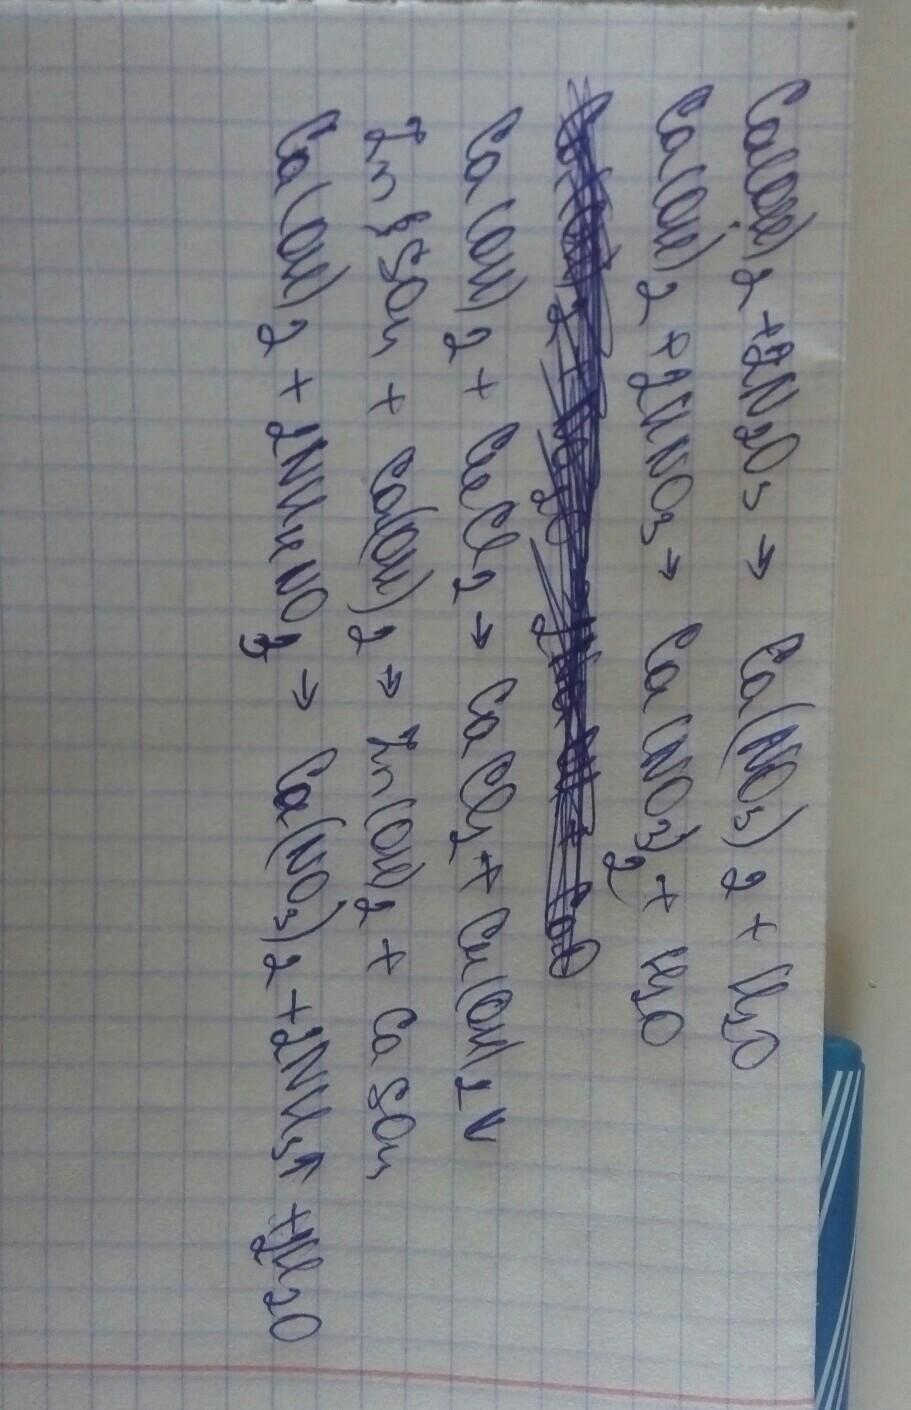 Ca(OH)2 + 2N2O5 → Ca(NO3)2 + H2O
Ca(OH)2 + 2HNO3 → Ca(NO3)2 + H2O
Ca(OH)2 + CuCl2 → CaCl2 + Cu(OH)2↓
ZnSO4 + Ca(OH)2 → Zn(OH)2 + CaSO4
Ca(OH)2 + 2NH4NO3 → Ca(NO3)2 + 2NH3↑ + 2H2O